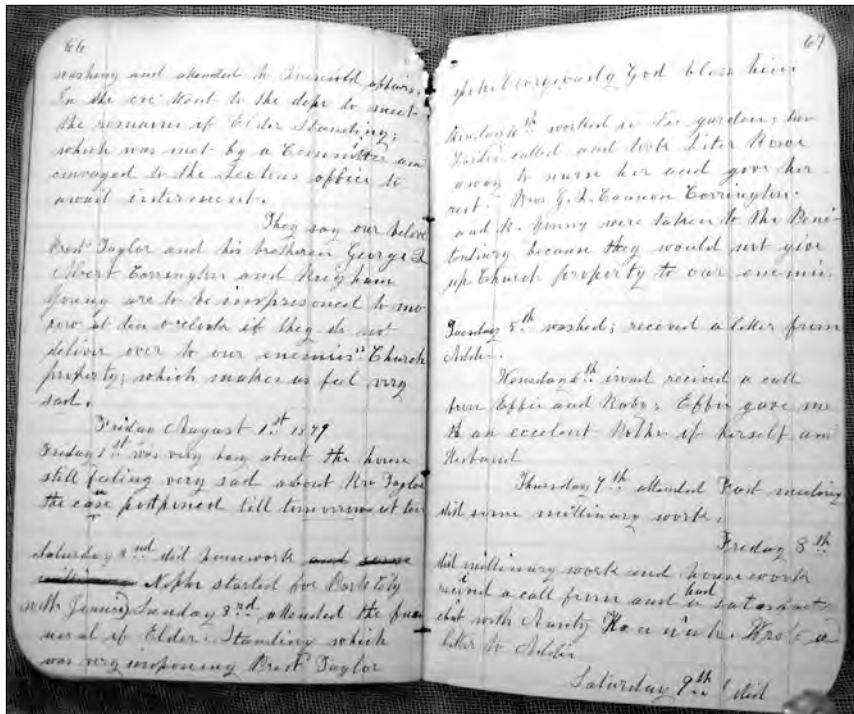 66
washing and attended to household affairs.
In the eve Went to the depo to meet
the remains of Elder Standing;
which was met by a Committee an
convayed to the Sextons office to
await interment.
They say our belove
Prest Taylor and his bretheren George Q
Albert Carrington and Brigham
Young are to be impresoned to mo
row at ten oclock if they do not
deliver over to our enemies Church
property; which makes us feel very
sad.
Friday August 1st 1879
Friday 1st was very busy about the house
still feeling very sad about Bro Taylor
the case postponed till tomorrow at ten
Saturday 2nd did housework and some
millinary Nephi started for Park City
with Jennie) Sunday 3rd attended the fune
neral of Elder Standing which
was very imposing Prest Taylor
67
spoke Gorgiously God bless him
4th worked in the garden;
called and took Sister Rowe
away to nurse her and give her
rest. Bros G. Q. Cannon Carrington.
and B. Young were taken to the Peni
tentiary because they would not give
up Church property to our enemies
Tuesday 5th washed; recieved a letter from
Addie.
Wensday 6th irond recieved a call
from Effie and Baby; Effie gave me
an excelent Potho of herself and
Husband
Thursday 7th attended Fast meeting
did some millinary work.
Friday 8th
did millinary work and housework
recieved a call from and had a
chat with Aunty Wrote a
letter to Addie
Saturday 9th did